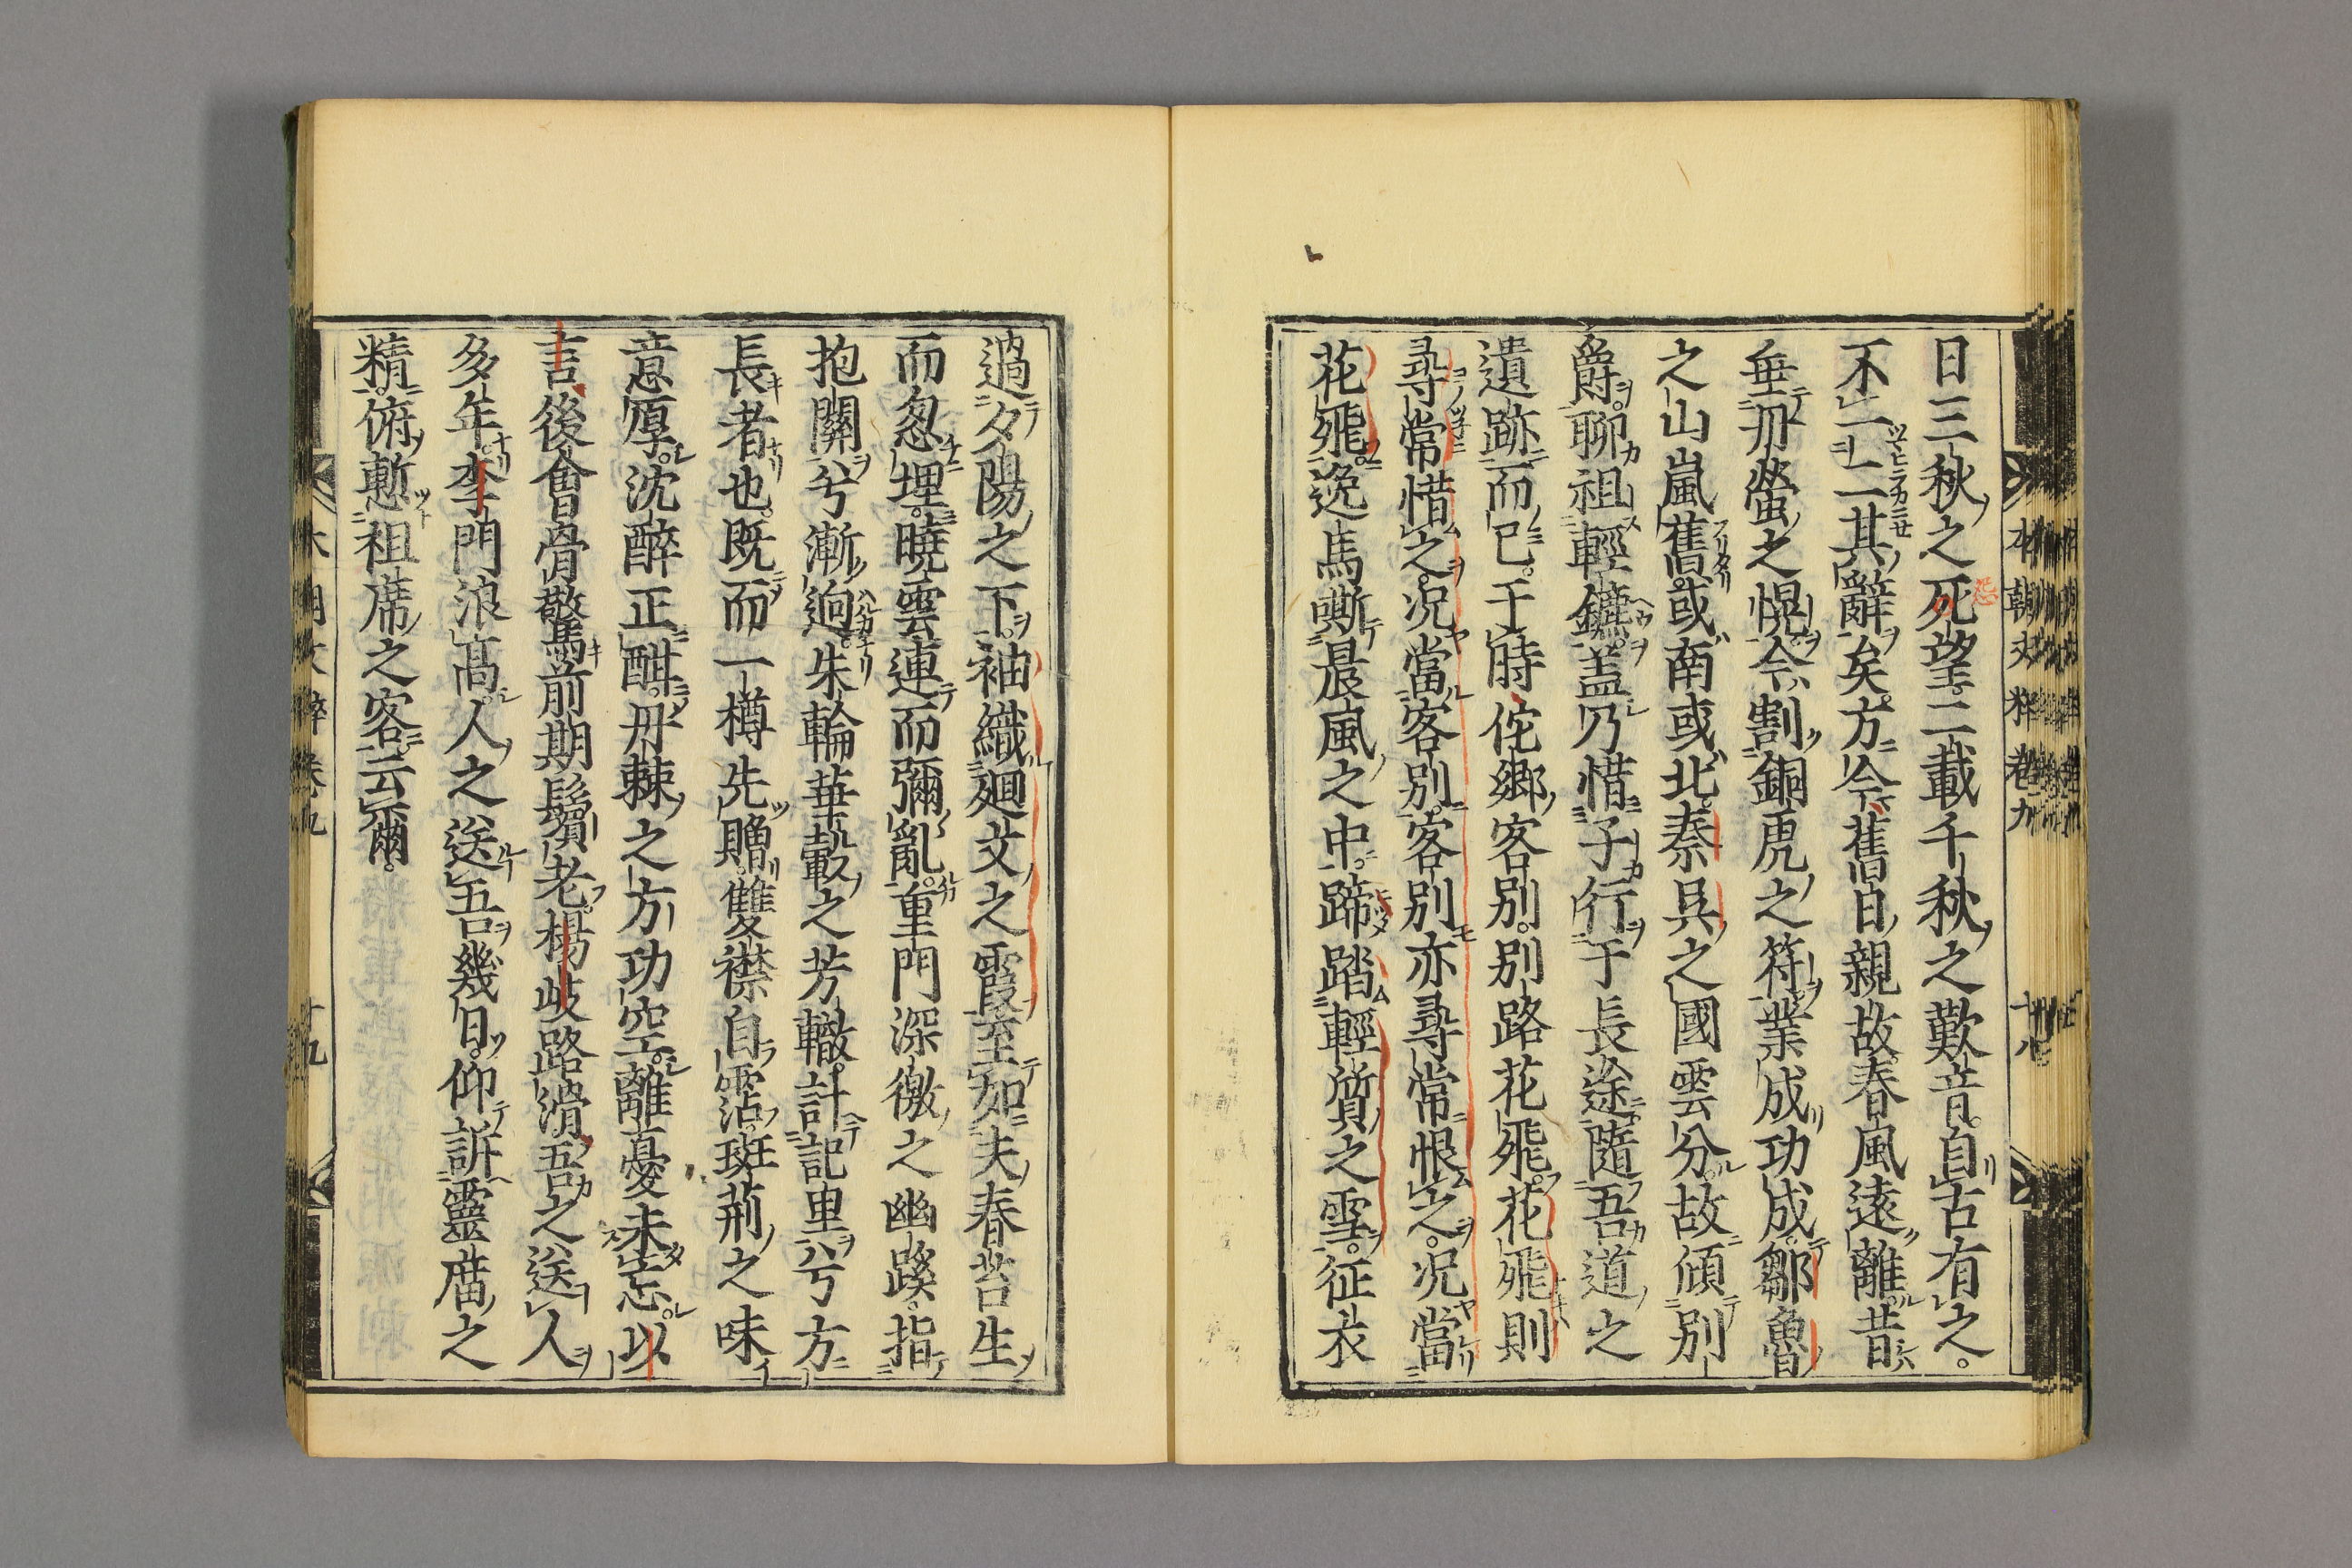 日三秋之死望二載千秋之歎音自古有之。
不二一其辭矣方今舊日親故春風遠離昔
垂丹螢之幌今割銅虎之符業成功成鄒魯
之山嵐舊或南或北秦呉之國雲分故傾別
爵聊祖輕鑣盖乃惜子行于長途隨吾道之
遺跡而已于時侘鄉客別別路花飛花飛則
尋常惜之况當客別客別亦尋常恨之况當
花飛逸馬嘶晨風之中蹄踏輕質之雪征衣
過夕陽之下袖織廻文之霞至如夫春苔生
而忽埋曉雲連而彌亂重門深徼之幽蹊指
抱關兮漸逈朱輪華轂之芳轍計記里兮方
長者也既而一樽先贈雙襟自霑斑荊之味
意厚沈醉正酣丹棘之方功空離憂未忘以
言後會骨驚前期鬢老楊歧路滑吾之送人
多年李門浪高人之送吾幾日仰訴靈庿之
精俯慙祖席之客云爾。
本朝文粹卷九 十八
本朝文粹卷九 十九